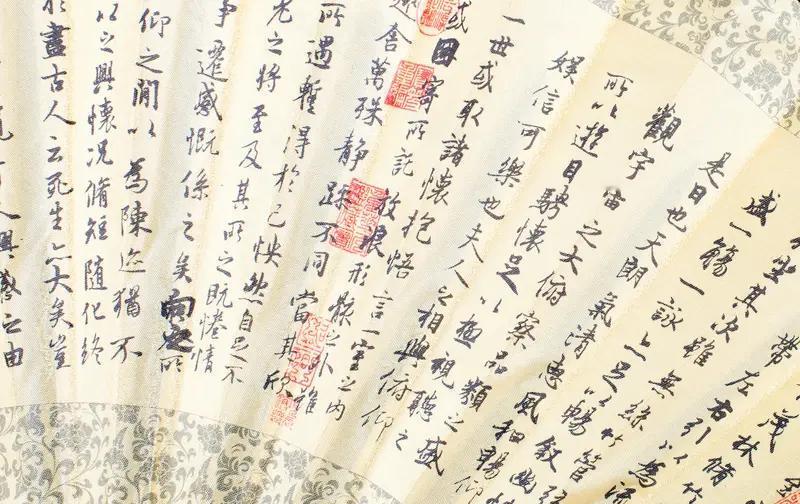 茂林
帶左右引以為
坐其次雖無絲竹管
盛一觴一詠亦足以暢敘幽
是日也天朗氣清惠風和暢仰
觀宇宙之大俯察品類之盛
所以遊目騁懷足以極視聽之
娛信可樂也夫人之相與俯仰
一世或取諸懷抱悟言一室之內
或因寄所託放浪形骸之外雖
舍萬殊靜躁不同當其欣
所遇暫得於己怏然自足不
老之將至及其所之既惓情
事遷感慨係之矣向之所
仰之間以為陳迹猶不
以之興懷況脩短隨化終
於盡古人云死生亦大矣豈
人興感之由